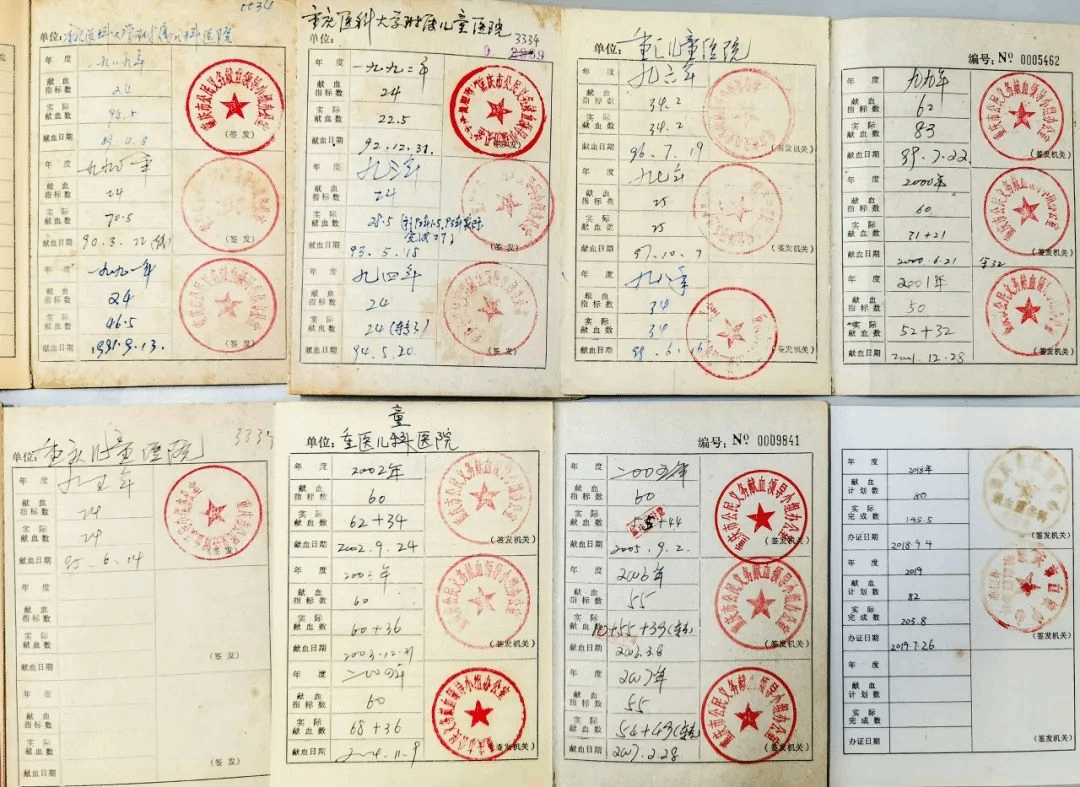 0034
单位:重庆医科大学附属儿科医院
年 度 一九八九年
献血指标数 24
实际献血数 93.5
献血日期 89.11.8
(签 发)
年 度 一九九〇年
献血指标数 24
实际献血数 70.5
献血日期 90.3.22
(签 发)
年 度 一九九一年
献血指标数 24
实际献血数 46.5
献血日期 1991.9.13.
(签 发)
重庆医科大学附属儿童医院
3334
年 度 一九九二年
献血指标数 24
实际献血数 22.5
献血日期 92.12.31.
(签 发)
年 度 九三年
献血指标数 24
实际献血数 28.5
献血日期 93.5.18
(签 发)
年 度 九四年
献血指标数 24
实际献血数 24
献血日期 94.5.20.
(签 发)
单位:重庆儿童医院
年 度 九六年
献血指标数 34.2
实际献血数 34.2
献血日期 96.7.19
(签发机关)
年 度 九七年
献血指标数 25
实际献血数 25
献血日期 97.10.7
(签发机关)
年 度 九八年
献血指标数 34
实际献血数 34
献血日期
(签发机关)
编号:№ 0005462
年 度 九九年
献血指标数 62
实际献血数 83
献血日期 99.7.22.
(签发机关)
年 度 2000年
献血指标数 60
实际献血数 71+21
献血日期 2000.6.21
(签发机关)
年 度 2001年
献血指标数 50
实际献血数 52+32
献血日期 2001.12.28
(签发机关)
重庆市公民义务献血领导小组办公室
单位:重庆儿童医院 3334
年 度 九五年
献血指标数 24
实际献血数 24
献血日期 95.6.14
(签 发)
年 度
献血指标数
实际献血数
献血日期
(签 发)
年 度
献血指标数
实际献血数
献血日期
(签 发)
童
单位:重医儿科医院
年 度 2002年
献血指标数 60
实际献血数 62+34
献血日期 2002.9.24
(签发机关)
年 度
献血指标数 60
实际献血数 60+36
献血日期 2003.12.
(签发机关)
年 度 二00四年
献血指标数 60
实际献血数 68+36
献血日期 2004.11.9
(签发机关)
重庆市公民义务献血领导小组办公室
编号:№ 0009841
年 度 二00五年
献血指标数 60
实际献血数 55+44
献血日期 2005.9.2.
(签发机关)
年 度 2006年
献血指标数 55
实际献血数 10+55+39
献血日期
(签发机关)
年 度 2007年
献血指标数 55
实际献血数 54+49
献血日期 2007.2.28
(签发机关)
重庆市公民义务献血领导小组办公室
年 度 2018年
献血计划数 80
实际完成数 145.5
办证日期 2018.9.4
(签发机关)
年 度 2019
献血计划数 82
实际完成数 205.8
办证日期 2019.7.26
(签发机关)
年 度
献血计划数
实际完成数
办证日期
(签发机关)